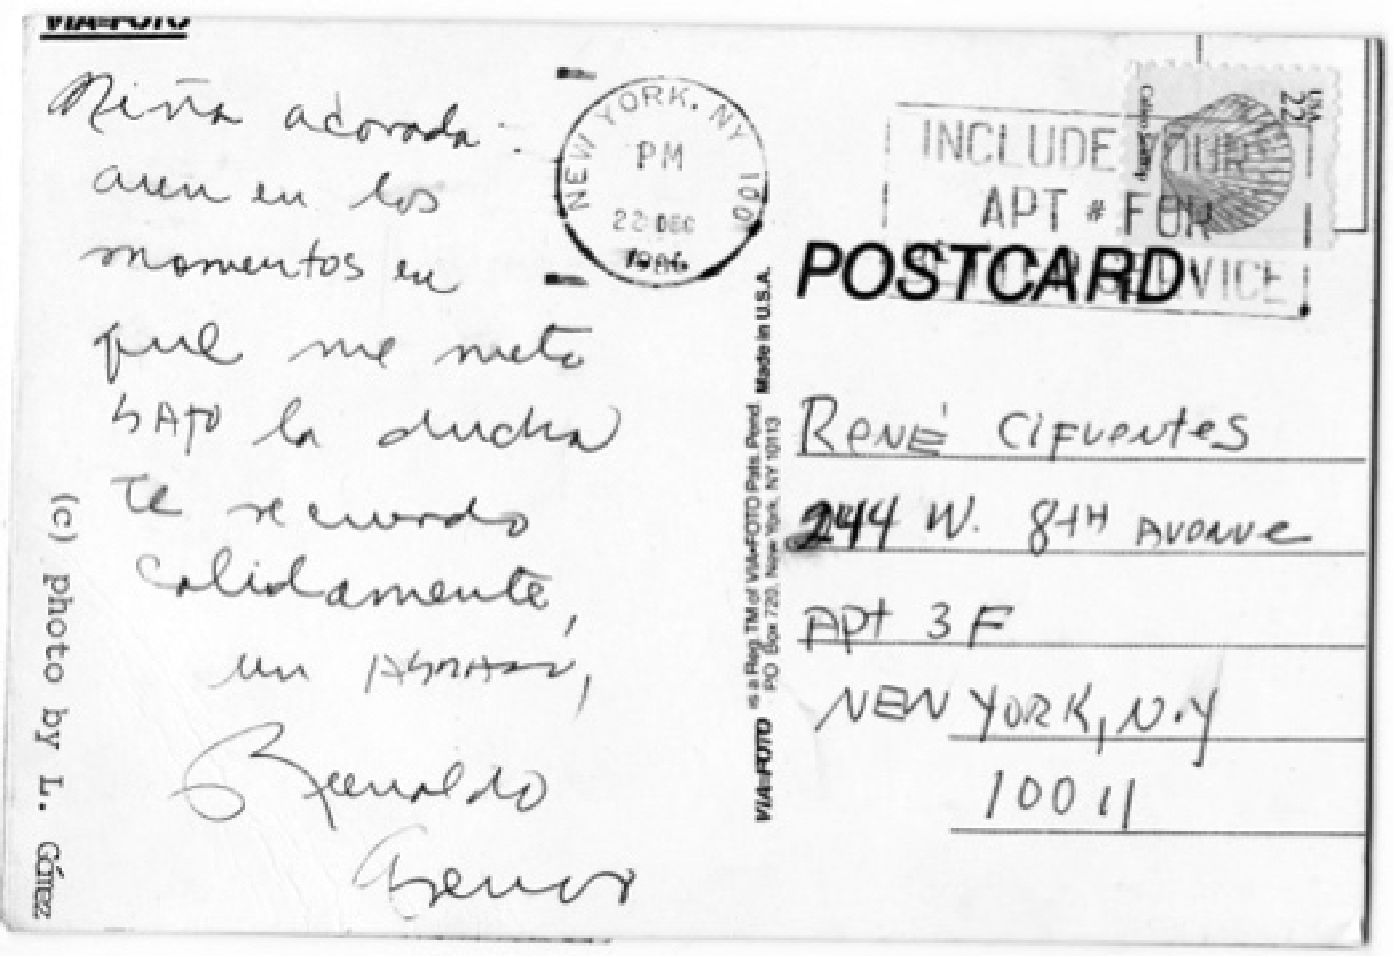 VIA•FOTO
Niña adorada:
aun en los
momentos en
que me meto
bajo la ducha
te recuerdo
calidamente,
un abrazo,
Reinaldo
Arenas
(c) photo by L. Gómez
NEW YORK, NY 100
PM
22 DEC
1986
INCLUDE YOUR
APT # FOR
SERVICE
USA
22
POSTCARD
VIA•FOTO is a Reg. TM of VIA•FOTO Pats. Pend. Made in U.S.A.
PO Box 720, New York, NY 10113
René Cifuentes
244 W. 8th Avenue
Apt 3F
New York, N.Y
10011